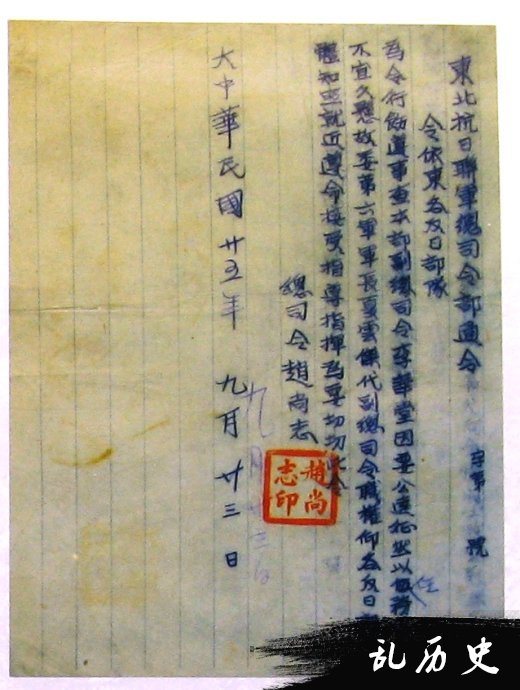 東北抗日聯軍總司令部通令 字第 號
令依東各反日部隊
為令行飭遵事查本部副總司令李華堂因要公遠征然以任務
不宜久懸故委第六軍軍長夏雲傑代副總司令職權仰各反日
體知照就近遵命接受指導指揮為要切切此令
總司令趙尚志
趙尚志印
大中華民國廿五年 九月廿三日
乱历史